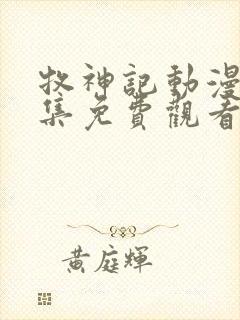 牧神記動漫
集免費觀看
黃庭輝